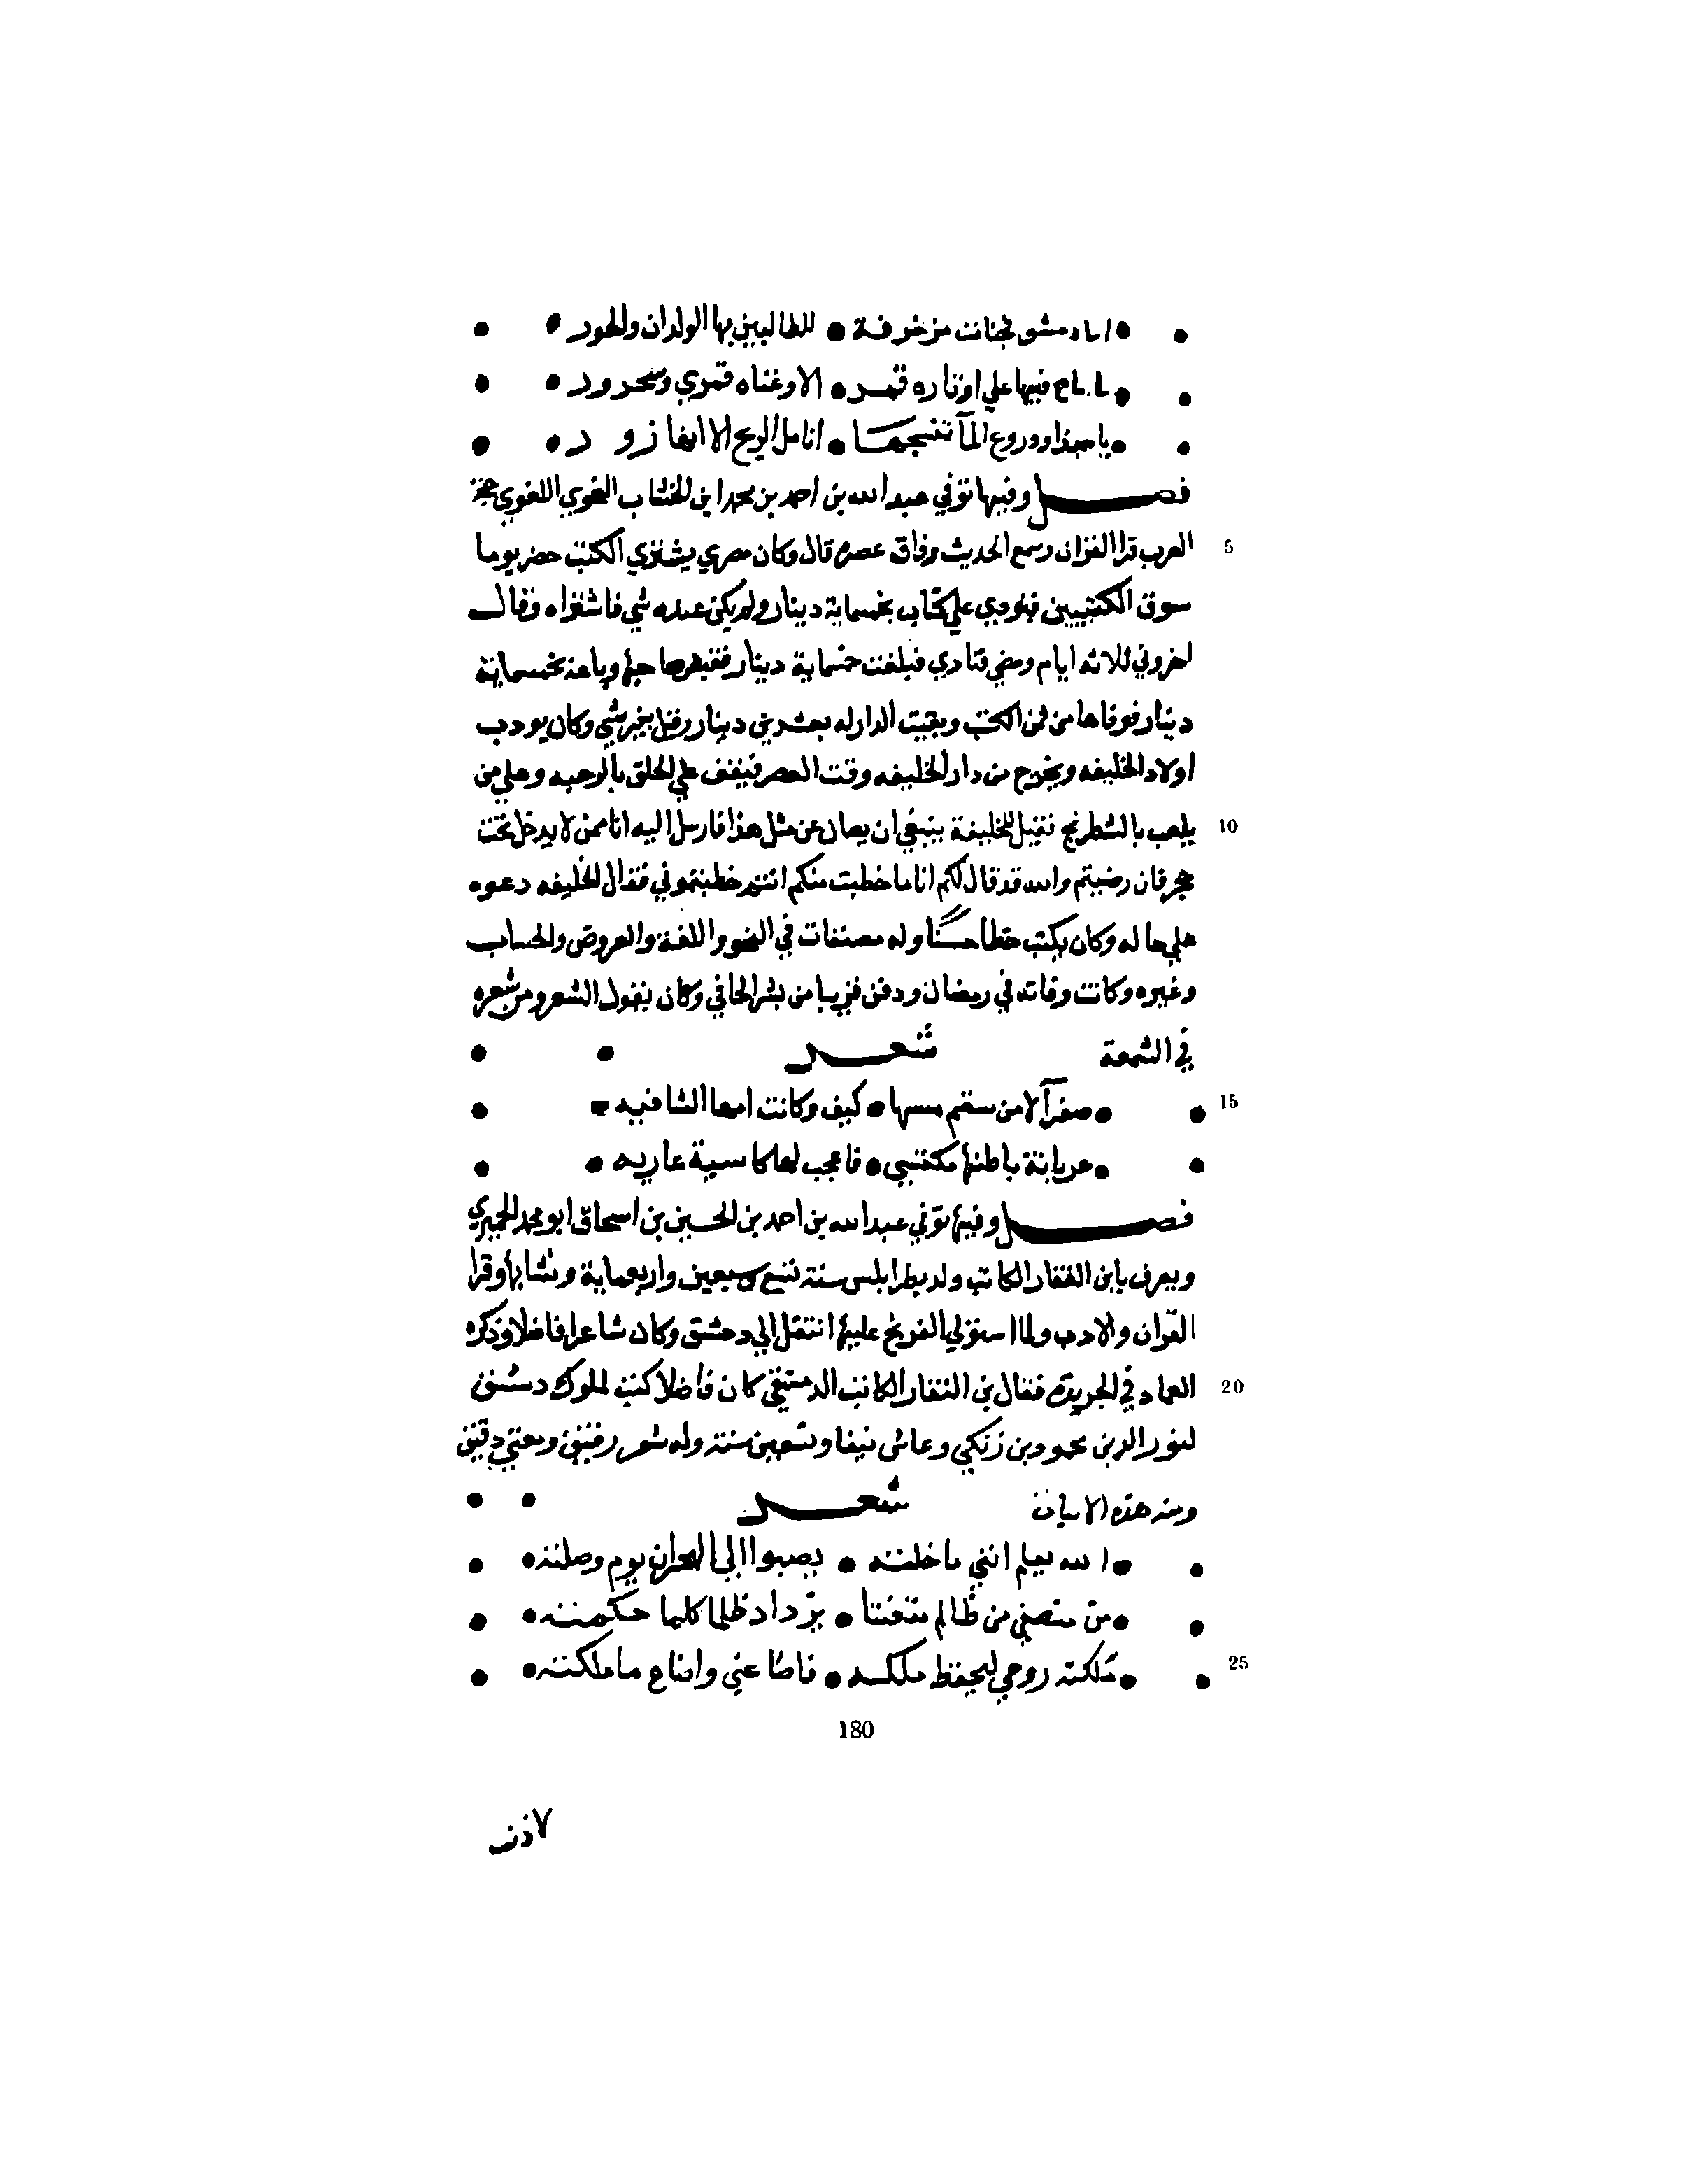 اما دمشق فجنات مزخرفة • للطالبين بها الولدان والحور
ما صاح فيها علي اوتاره قمر • الا وغناه قمري وشحرور
يا حبذا ودروع المآ تنسجها • انامل الريح الا انها زور
فصل وفيها توفي عبد الله بن احمد بن محمد ابن الخشاب النحوي اللغوي حجة
العرب قرا القران وسمع الحديث وفاق عصره قال وكان مصري يشتري الكتب حضر يوما
سوق الكتبيين فنودي علي كتاب بخمسماية دينار ولم يكن عنده شي فاشتراه وقال
اخروني ثلاثه ايام ومضي فنادي فبلغت خمسماية دينار فقبض صاحبها وباعه بخمسماية
دينار فوفاها من ثمن الكتب وبقيت الدار له بعشرين دينار وقيل بغير شي وكان يودب
اولاد الخليفه ويخرج من دار الخليفه وقت العصر فيقف علي الحلق بالرحبه وعلي من
يلعب بالشطرنج فقيل للخليفة ينبغي ان يصان عن مثل هذا فارسل اليه انا ممن لا يدخل تحت
حجر فان رضيتم والله قد قال لكم انا ما خطبت منكم انتم خطبتموني فقال الخليفه دعوه
علي حاله وكان يكتب خطا حسنًا وله مصنفات في النحو واللغة والعروض والحساب
وغيره وكانت وفاته في رمضان ودفن قريبا من بشر الحافي وكان يقول الشعر ومن شعره
في الشمعة شعر
صفرآ لا من سقم مسها • كيف وكانت امها الشافيه
عريانة باطنها مكتسي • فاعجب لها كاسية عاريه
فصل وفيها توفي عبد الله بن احمد بن الحسين بن اسحاق ابو محمد الحميري
ويعرف بابن النقار الكاتب ولد بطرابلس سنة تسع وسبعين واربعماية ونشا بها وقرا
القران والادب ولما استولي الفرنج عليها انتقل الي دمشق وكان شاعرا فاضلا وذكره
العماد في الخريدة فقال بن النقار الكاتب الدمشقي كان فاضلا كتب لملوك دمشق
لنور الدين محمود بن زنكي وعاش نيفا وتسعين سنة وله شعر رقيق ومعني دقيق
ومنه هذه الابيات شعر
الله يعلم انني ما خلته • يصبوا الي الهجران يوم وصلته
من منصفي من ظالم متعنتا • يزداد ظلما كلما حكمته
ملكته روحي ليحفظ ملكه • فاضاعني واضاع ما ملكته
5
10
15
20
25
180